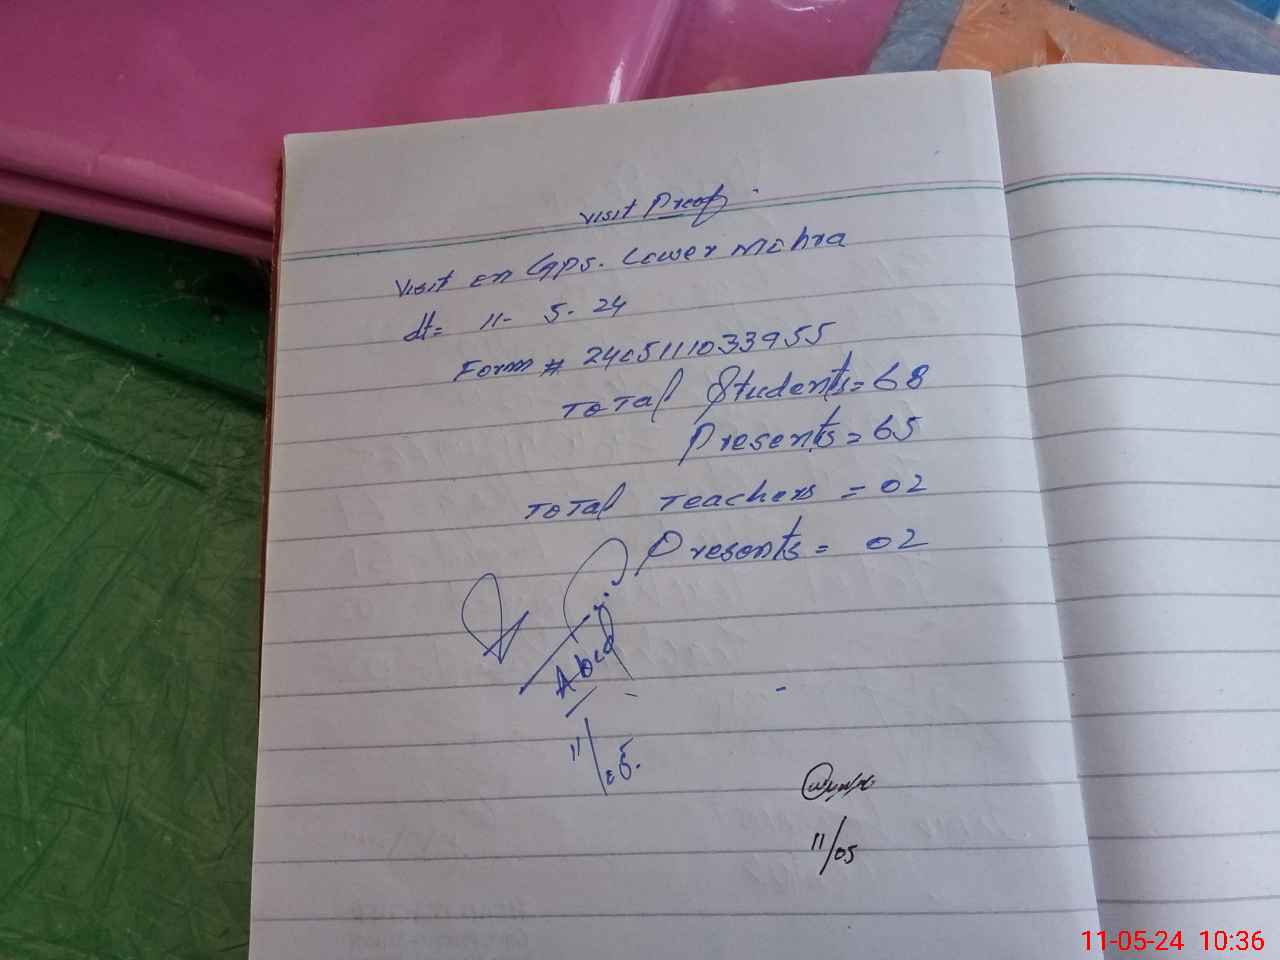 visit Proof.
Visit on Gps. Lower Mohra
dt= 11- 5- 24
Form # 2405111033955
Total Students= 68
Presents= 65
Total Teachers = 02
Presents= 02
11/05.
11/05
11-05-24 10:36